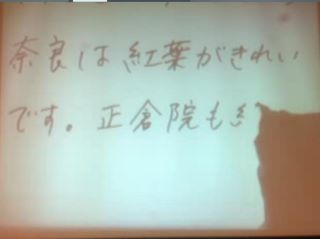 奈良は紅葉がきれい
です。正倉院も